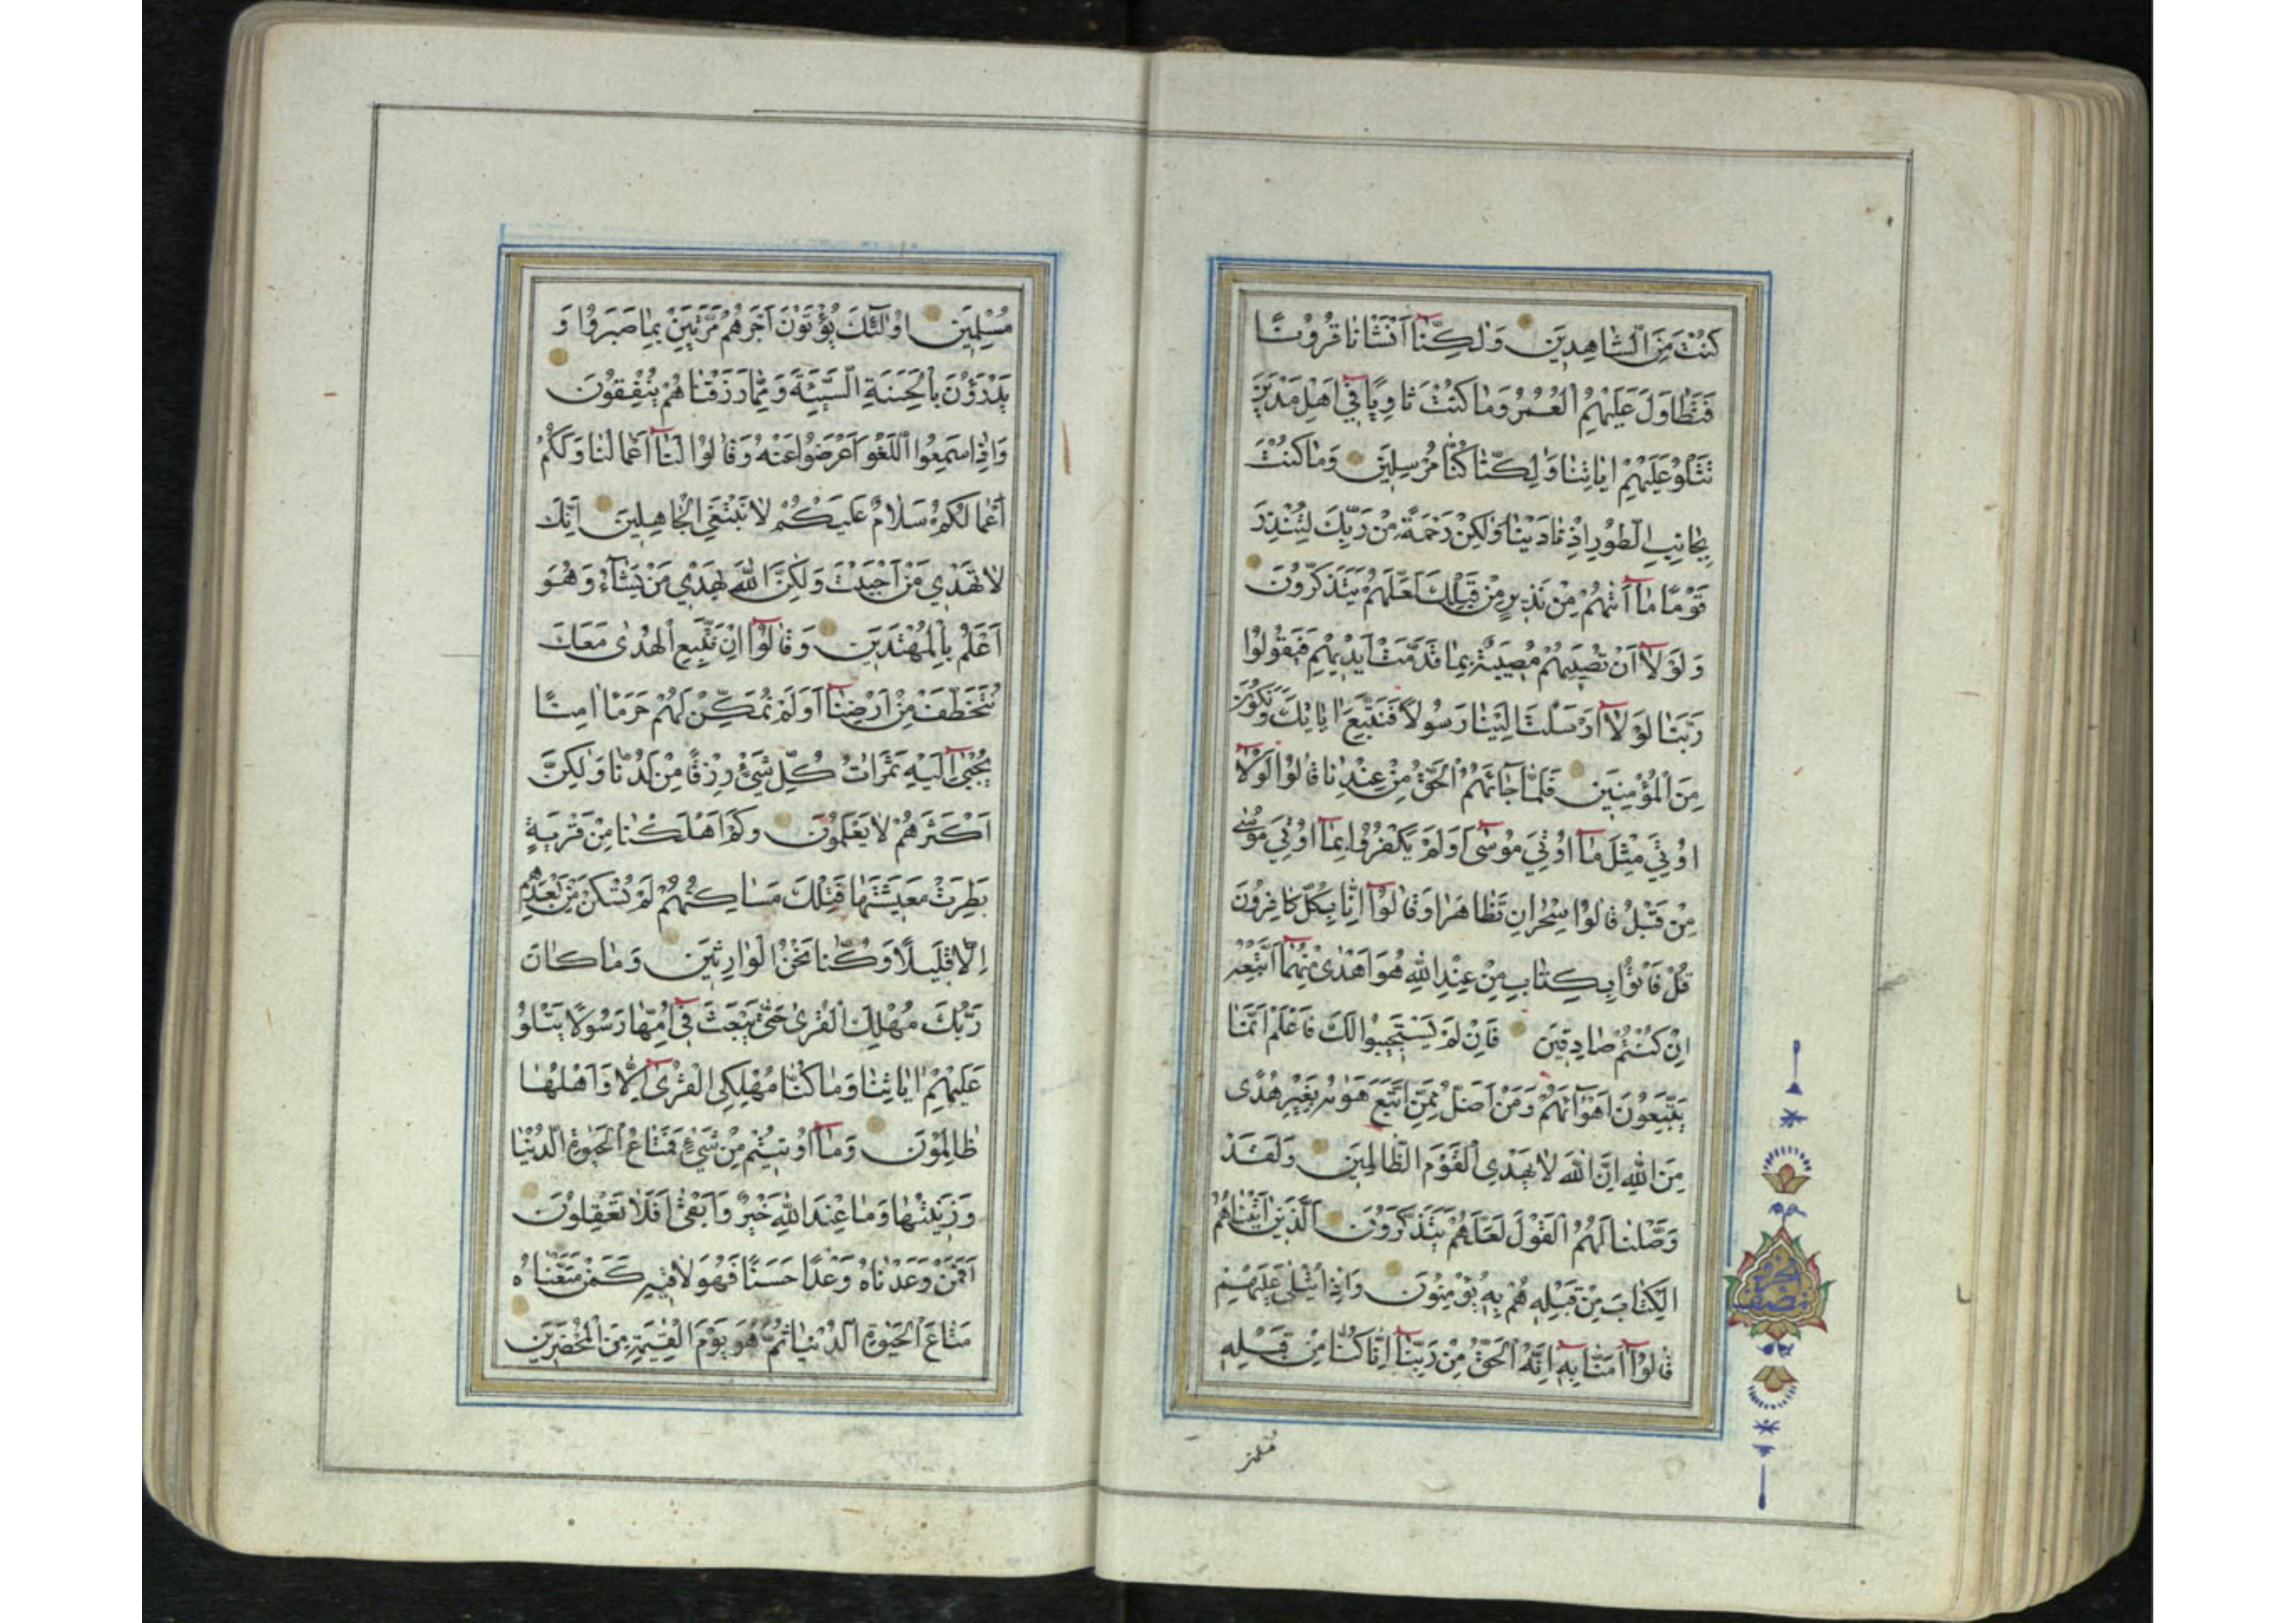 كُنْتَ مِنَ الشَّاهِدِينَ وَلٰكِنَّا أَنْشَأْنَا قُرُونًا
فَتَطَاوَلَ عَلَيْهِمُ الْعُمُرُ وَمَا كُنْتَ ثَاوِيًا فِي أَهْلِ مَدْيَنَ
تَتْلُو عَلَيْهِمْ اٰيَاتِنَا وَلٰكِنَّا كُنَّا مُرْسِلِينَ وَمَا كُنْتَ
بِجَانِبِ الطُّورِ إِذْ نَادَيْنَا وَلٰكِنْ رَحْمَةً مِنْ رَبِّكَ لِتُنْذِرَ
قَوْمًا مَا أَتٰهُمْ مِنْ نَذِيرٍ مِنْ قَبْلِكَ لَعَلَّهُمْ يَتَذَكَّرُونَ
وَلَوْلَا أَنْ تُصِيبَهُمْ مُصِيبَةٌ بِمَا قَدَّمَتْ أَيْدِيهِمْ فَيَقُولُوا
رَبَّنَا لَوْلَا أَرْسَلْتَ إِلَيْنَا رَسُولًا فَنَتَّبِعَ اٰيَاتِكَ وَنَكُونَ
مِنَ الْمُؤْمِنِينَ فَلَمَّا جَائَهُمُ الْحَقُّ مِنْ عِنْدِنَا قَالُوا لَوْلَا
اُوتِيَ مِثْلَ مَا اُوتِيَ مُوسٰى أَوَلَمْ يَكْفُرُوا بِمَا اُوتِيَ مُوسٰى
مِنْ قَبْلُ قَالُوا سِحْرَانِ تَظَاهَرَا وَقَالُوا إِنَّا بِكُلٍّ كَافِرُونَ
قُلْ فَأْتُوا بِكِتَابٍ مِنْ عِنْدِ اللّٰهِ هُوَ أَهْدٰى مِنْهُمَا أَتَّبِعْهُ
إِنْ كُنْتُمْ صَادِقِينَ فَإِنْ لَمْ يَسْتَجِيبُوا لَكَ فَاعْلَمْ أَنَّمَا
يَتَّبِعُونَ أَهْوَائَهُمْ وَمَنْ أَضَلُّ مِمَّنِ اتَّبَعَ هَوٰيهُ بِغَيْرِ هُدًى
مِنَ اللّٰهِ إِنَّ اللّٰهَ لَا يَهْدِي الْقَوْمَ الظَّالِمِينَ وَلَقَدْ
وَصَّلْنَا لَهُمُ الْقَوْلَ لَعَلَّهُمْ يَتَذَكَّرُونَ الَّذِينَ اٰتَيْنَاهُمُ
الْكِتَابَ مِنْ قَبْلِهِ هُمْ بِهِ يُؤْمِنُونَ وَإِذَا يُتْلٰى عَلَيْهِمْ
قَالُوا اٰمَنَّا بِهِ إِنَّهُ الْحَقُّ مِنْ رَبِّنَا إِنَّا كُنَّا مِنْ قَبْلِهِ
مُسْلِمِينَ اُولٰئِكَ يُؤْتَوْنَ أَجْرَهُمْ مَرَّتَيْنِ بِمَا صَبَرُوا وَ
يَدْرَؤُنَ بِالْحَسَنَةِ السَّيِّئَةَ وَمِمَّا رَزَقْنَاهُمْ يُنْفِقُونَ
وَإِذَا سَمِعُوا اللَّغْوَ أَعْرَضُوا عَنْهُ وَقَالُوا لَنَا أَعْمَالُنَا وَلَكُمْ
أَعْمَالُكُمْ سَلَامٌ عَلَيْكُمْ لَا نَبْتَغِي الْجَاهِلِينَ إِنَّكَ
لَا تَهْدِي مَنْ أَحْبَبْتَ وَلٰكِنَّ اللّٰهَ يَهْدِي مَنْ يَشَاءُ وَهُوَ
أَعْلَمُ بِالْمُهْتَدِينَ وَقَالُوا إِنْ نَتَّبِعِ الْهُدٰى مَعَكَ
نُتَخَطَّفْ مِنْ أَرْضِنَا أَوَلَمْ نُمَكِّنْ لَهُمْ حَرَمًا اٰمِنًا
يُجْبٰى إِلَيْهِ ثَمَرَاتُ كُلِّ شَيْءٍ رِزْقًا مِنْ لَدُنَّا وَلٰكِنَّ
أَكْثَرَهُمْ لَا يَعْلَمُونَ وَكَمْ أَهْلَكْنَا مِنْ قَرْيَةٍ
بَطِرَتْ مَعِيشَتَهَا فَتِلْكَ مَسَاكِنُهُمْ لَمْ تُسْكَنْ مِنْ بَعْدِهِمْ
إِلَّا قَلِيلًا وَكُنَّا نَحْنُ الْوَارِثِينَ وَمَا كَانَ
رَبُّكَ مُهْلِكَ الْقُرٰى حَتّٰى يَبْعَثَ فِي اُمِّهَا رَسُولًا يَتْلُو
عَلَيْهِمْ اٰيَاتِنَا وَمَا كُنَّا مُهْلِكِي الْقُرٰى إِلَّا وَأَهْلُهَا
ظَالِمُونَ وَمَا اُوتِيتُمْ مِنْ شَيْءٍ فَمَتَاعُ الْحَيٰوةِ الدُّنْيَا
وَزِينَتُهَا وَمَا عِنْدَ اللّٰهِ خَيْرٌ وَأَبْقٰى أَفَلَا تَعْقِلُونَ
أَفَمَنْ وَعَدْنَاهُ وَعْدًا حَسَنًا فَهُوَ لَاقِيهِ كَمَنْ مَتَّعْنَاهُ
مَتَاعَ الْحَيٰوةِ الدُّنْيَا ثُمَّ هُوَ يَوْمَ الْقِيٰمَةِ مِنَ الْمُحْضَرِينَ